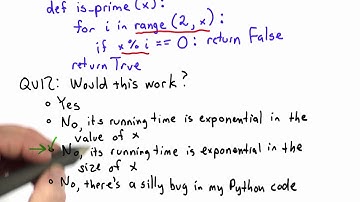 def is-prime (x):
for i in range (2, x):
if x % i == 0: return False
return True
QUIZ: Would this work?
Yes
No, its running time is exponential in the
value of x
No, its running time is exponential in the
size of x
No, there's a silly bug in my Python code